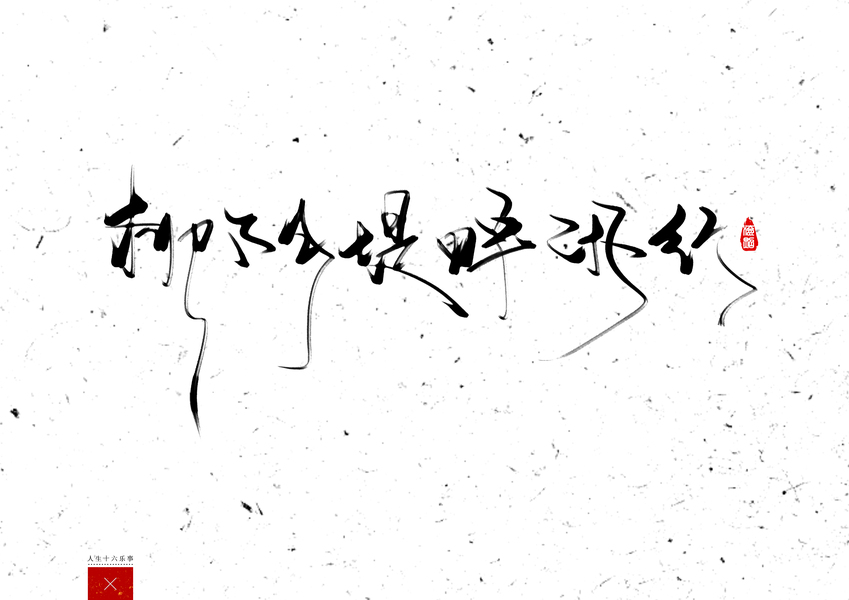 柳陰堤畔闲行
人生十六乐事